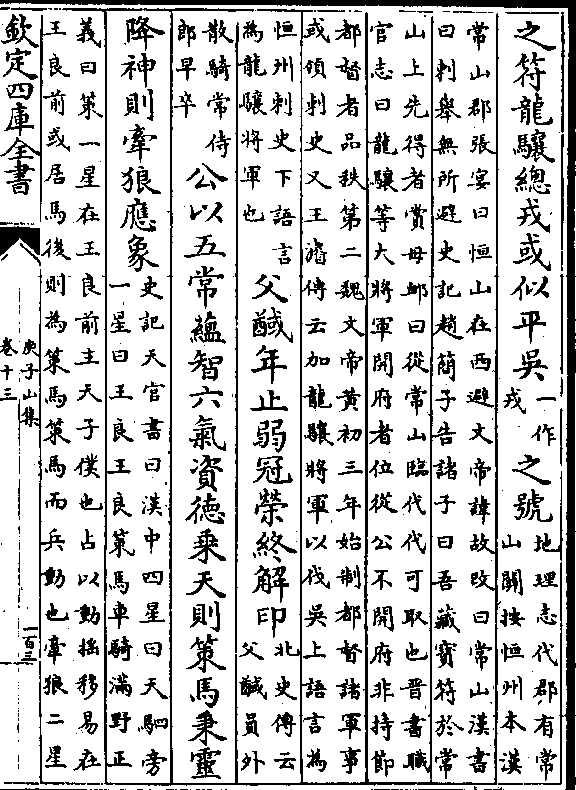 之符龍驤總戎或似平吳一作戎之號地理志代郡有常
山關按恒州本漢
常山郡張宴曰恒山在西避文帝諱故改曰常山漢書
曰刺舉無所避史記趙簡子告諸子曰吾藏寶符於常
山上先得者賞毋卹曰從常山臨代代可取也晉書職
官志曰龍驤等大將軍開府者位從公不開府非持節
都督者品秩第二魏文帝黃初三年始制都督諸軍事
或領刺史又王濬傳云加龍驤將軍以伐吳上語言為
恒州刺史下語言
為龍驤將軍也父鹹年止弱冠榮終解印北史傳云
父鹹員外
散騎常侍
郎早卒公以五常蘊智六氣資德乘天則策馬秉靈
降神則牽狼應象史記天官書曰漢中四星曰天駟旁
一星曰王良王良策馬車騎滿野正
義曰策一星在王良前主天子僕也占以動搖移易在
王良前或居馬後則為策馬策馬而兵動也牽狼二星
欽定四庫全書
庾子山集
卷十三
一百三